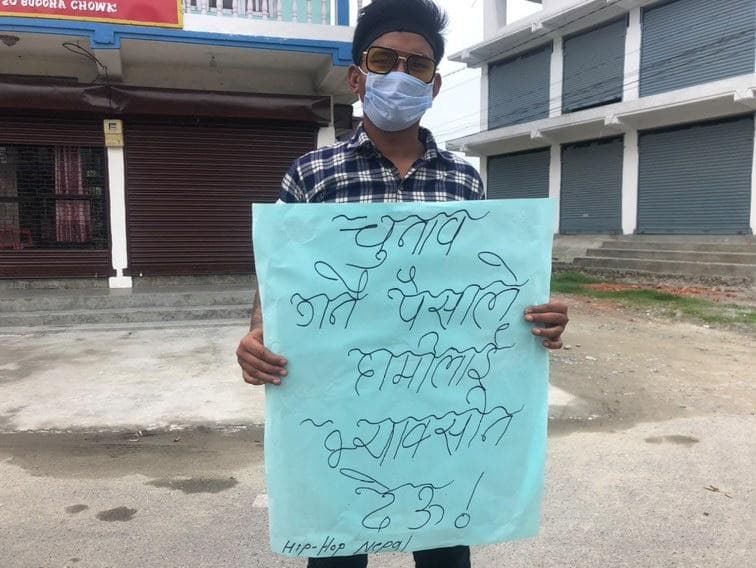 20 BUDDHA CHOWK
चुनाव
गर्ने पैसाले
हामीलाई
भ्याक्सीन
देऊ !
HIP-HOP Nepal